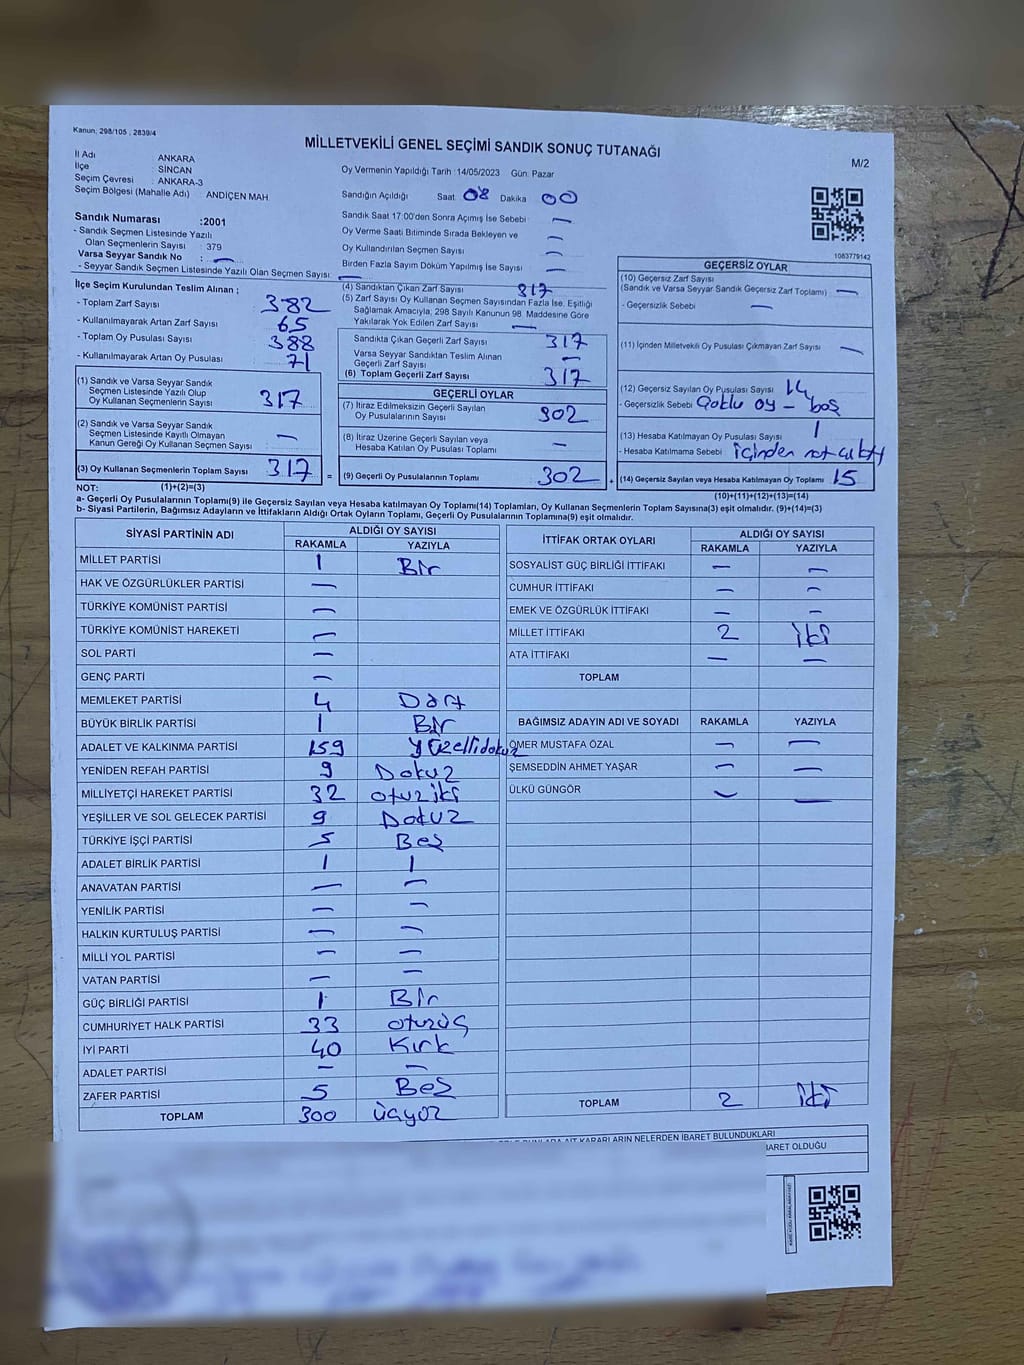 Kanun; 298/105 , 2839/4
MİLLETVEKİLİ GENEL SEÇİMİ SANDIK SONUÇ TUTANAĞI
M/2
İl Adı ANKARA
İlçe : SİNCAN
Seçim Çevresi : ANKARA-3
Seçim Bölgesi (Mahalle Adı) : ANDİÇEN MAH
Sandık Numarası :2001
- Sandık Seçmen Listesinde Yazılı
Olan Seçmenlerin Sayısı : 379
Varsa Seyyar Sandık No : —
- Seyyar Sandık Seçmen Listesinde Yazılı Olan Seçmen Sayısı: —
Oy Vermenin Yapıldığı Tarih :14/05/2023 Gün: Pazar
Sandığın Açıldığı Saat 08 Dakika 00
Sandık Saat 17:00'den Sonra Açımış İse Sebebi : —
Oy Verme Saati Bitiminde Sırada Bekleyen ve —
Oy Kullandırılan Seçmen Sayısı —
Birden Fazla Sayım Döküm Yapılmış İse Sayısı —
1083779142
İlçe Seçim Kurulundan Teslim Alınan ;
- Toplam Zarf Sayısı 382
- Kullanılmayarak Artan Zarf Sayısı 65
- Toplam Oy Pusulası Sayısı 388
- Kullanılmayarak Artan Oy Pusulası 71
(1) Sandık ve Varsa Seyyar Sandık
Seçmen Listesinde Yazılı Olup
Oy Kullanan Seçmenlerin Sayısı 317
(2) Sandık ve Varsa Seyyar Sandık
Seçmen Listesinde Kayıtlı Olmayan
Kanun Gereği Oy Kullanan Seçmen Sayısı : —
(3) Oy Kullanan Seçmenlerin Toplam Sayısı 317 =
(4) Sandıktan Çıkan Zarf Sayısı 317
(5) Zarf Sayısı Oy Kullanan Seçmen Sayısından Fazla İse, Eşitliği
Sağlamak Amacıyla; 298 Sayılı Kanunun 98. Maddesine Göre
Yakılarak Yok Edilen Zarf Sayısı —
Sandıkta Çıkan Geçerli Zarf Sayısı 317
Varsa Seyyar Sandıktan Teslim Alınan
Geçerli Zarf Sayısı —
(6) Toplam Geçerli Zarf Sayısı 317
GEÇERLİ OYLAR
(7) İtiraz Edilmeksizin Geçerli Sayılan
Oy Pusulalarının Sayısı 302
(8) İtiraz Üzerine Geçerli Sayılan veya
Hesaba Katılan Oy Pusulası Toplamı —
(9) Geçerli Oy Pusulalarının Toplamı 302 +
GEÇERSİZ OYLAR
(10) Geçersiz Zarf Sayısı
(Sandık ve Varsa Seyyar Sandık Geçersiz Zarf Toplamı) —
- Geçersizlik Sebebi : —
(11) İçinden Milletvekili Oy Pusulası Çıkmayan Zarf Sayısı —
(12) Geçersiz Sayılan Oy Pusulası Sayısı 14
- Geçersizlik Sebebi Çoklu oy – boş
(13) Hesaba Katılmayan Oy Pusulası Sayısı 1
- Hesaba Katılmama Sebebi içinden not çıktı
(14) Geçersiz Sayılan veya Hesaba Katılmayan Oy Toplamı 15
NOT: (1)+(2)=(3)
(10)+(11)+(12)+(13)=(14)
a- Geçerli Oy Pusulalarının Toplamı(9) ile Geçersiz Sayılan veya Hesaba katılmayan Oy Toplamı(14) Toplamları, Oy Kullanan Seçmenlerin Toplam Sayısına(3) eşit olmalıdır. (9)+(14)=(3)
b- Siyasi Partilerin, Bağımsız Adayların ve İttifakların Aldığı Ortak Oyların Toplamı, Geçerli Oy Pusulalarının Toplamına(9) eşit olmalıdır.
SİYASİ PARTİNİN ADI ALDIĞI OY SAYISI
RAKAMLA YAZIYLA
MİLLET PARTİSİ 1 Bir
HAK VE ÖZGÜRLÜKLER PARTİSİ —
TÜRKİYE KOMÜNİST PARTİSİ —
TÜRKİYE KOMÜNİST HAREKETİ —
SOL PARTİ —
GENÇ PARTİ —
MEMLEKET PARTİSİ 4 Dört
BÜYÜK BİRLİK PARTİSİ 1 Bir
ADALET VE KALKINMA PARTİSİ 159 yüzellidokuz
YENİDEN REFAH PARTİSİ 9 Dokuz
MİLLİYETÇİ HAREKET PARTİSİ 32 otuziki
YEŞİLLER VE SOL GELECEK PARTİSİ 9 Dokuz
TÜRKİYE İŞÇİ PARTİSİ 5 Beş
ADALET BİRLİK PARTİSİ 1 1
ANAVATAN PARTİSİ — —
YENİLİK PARTİSİ — —
HALKIN KURTULUŞ PARTİSİ — —
MİLLİ YOL PARTİSİ — —
VATAN PARTİSİ — —
GÜÇ BİRLİĞİ PARTİSİ 1 Bir
CUMHURİYET HALK PARTİSİ 33 otuzüç
İYİ PARTİ 40 Kırk
ADALET PARTİSİ — —
ZAFER PARTİSİ 5 Beş
TOPLAM 300 üçyüz
İTTİFAK ORTAK OYLARI ALDIĞI OY SAYISI
RAKAMLA YAZIYLA
SOSYALİST GÜÇ BİRLİĞİ İTTİFAKI — —
CUMHUR İTTİFAKI — —
EMEK VE ÖZGÜRLÜK İTTİFAKI — —
MİLLET İTTİFAKI 2 iki
ATA İTTİFAKI — —
TOPLAM
BAĞIMSIZ ADAYIN ADI VE SOYADI RAKAMLA YAZIYLA
ÖMER MUSTAFA ÖZAL — —
ŞEMSEDDİN AHMET YAŞAR — —
ÜLKÜ GÜNGÖR — —
TOPLAM 2 iki
KARARLARIN NELERDEN İBARET BULUNDUKLARI
BARET OLDUĞU